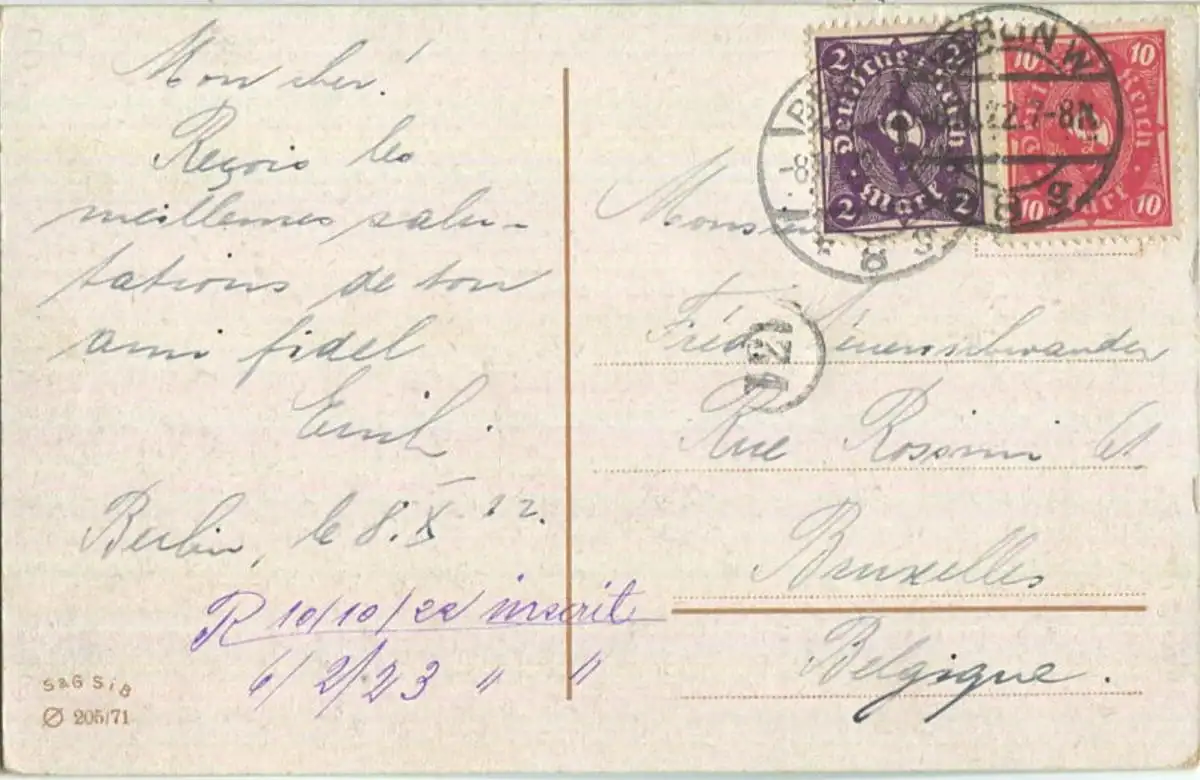 Mon cher!
Reçois les
meilleures salu-
tations de ton
ami fidel
Emil.
Berlin, le 8. X. 22.
R 10/10/22 inscrit
6/2/23 " "
S & G S i B
205/71
2 2
Deutsches Reich
Mark
2 2
10 10
Reich
Mark
10 10
BERLIN W
22.7-8N
8 g
Monsieur
Fréd.
Rue Rossini 61
Bruxelles
Belgique.